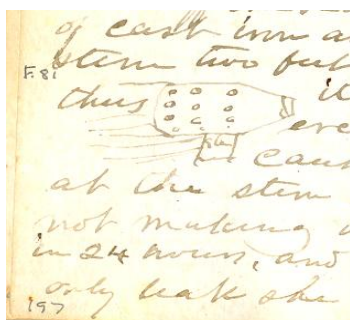 of cast iron a
stern two feet
F.81
thus it
eve
caus
at the stern
not making
in 24 hours, and
only leak she
197